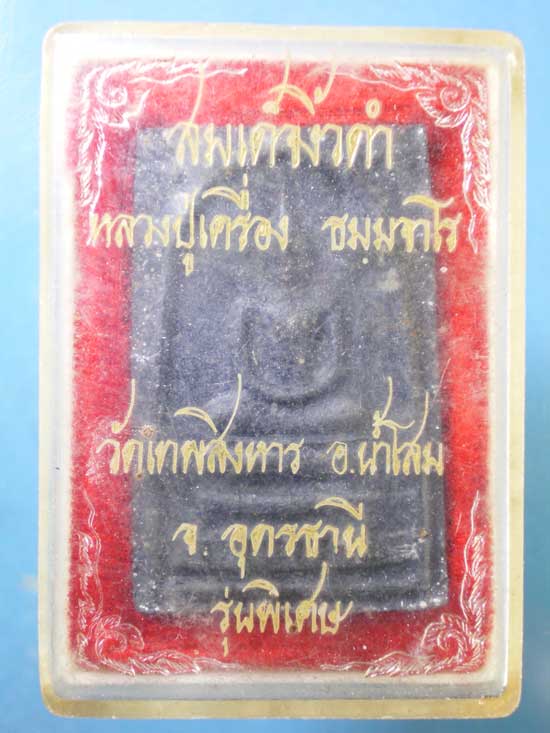 สมเด็จนิวดำ
หลวงปู่เครื่อง ธมฺมจาโร
วัดเทพสิงหาร อ.น้ำโสม
จ. อุดรธานี
รุ่นพิเศษ